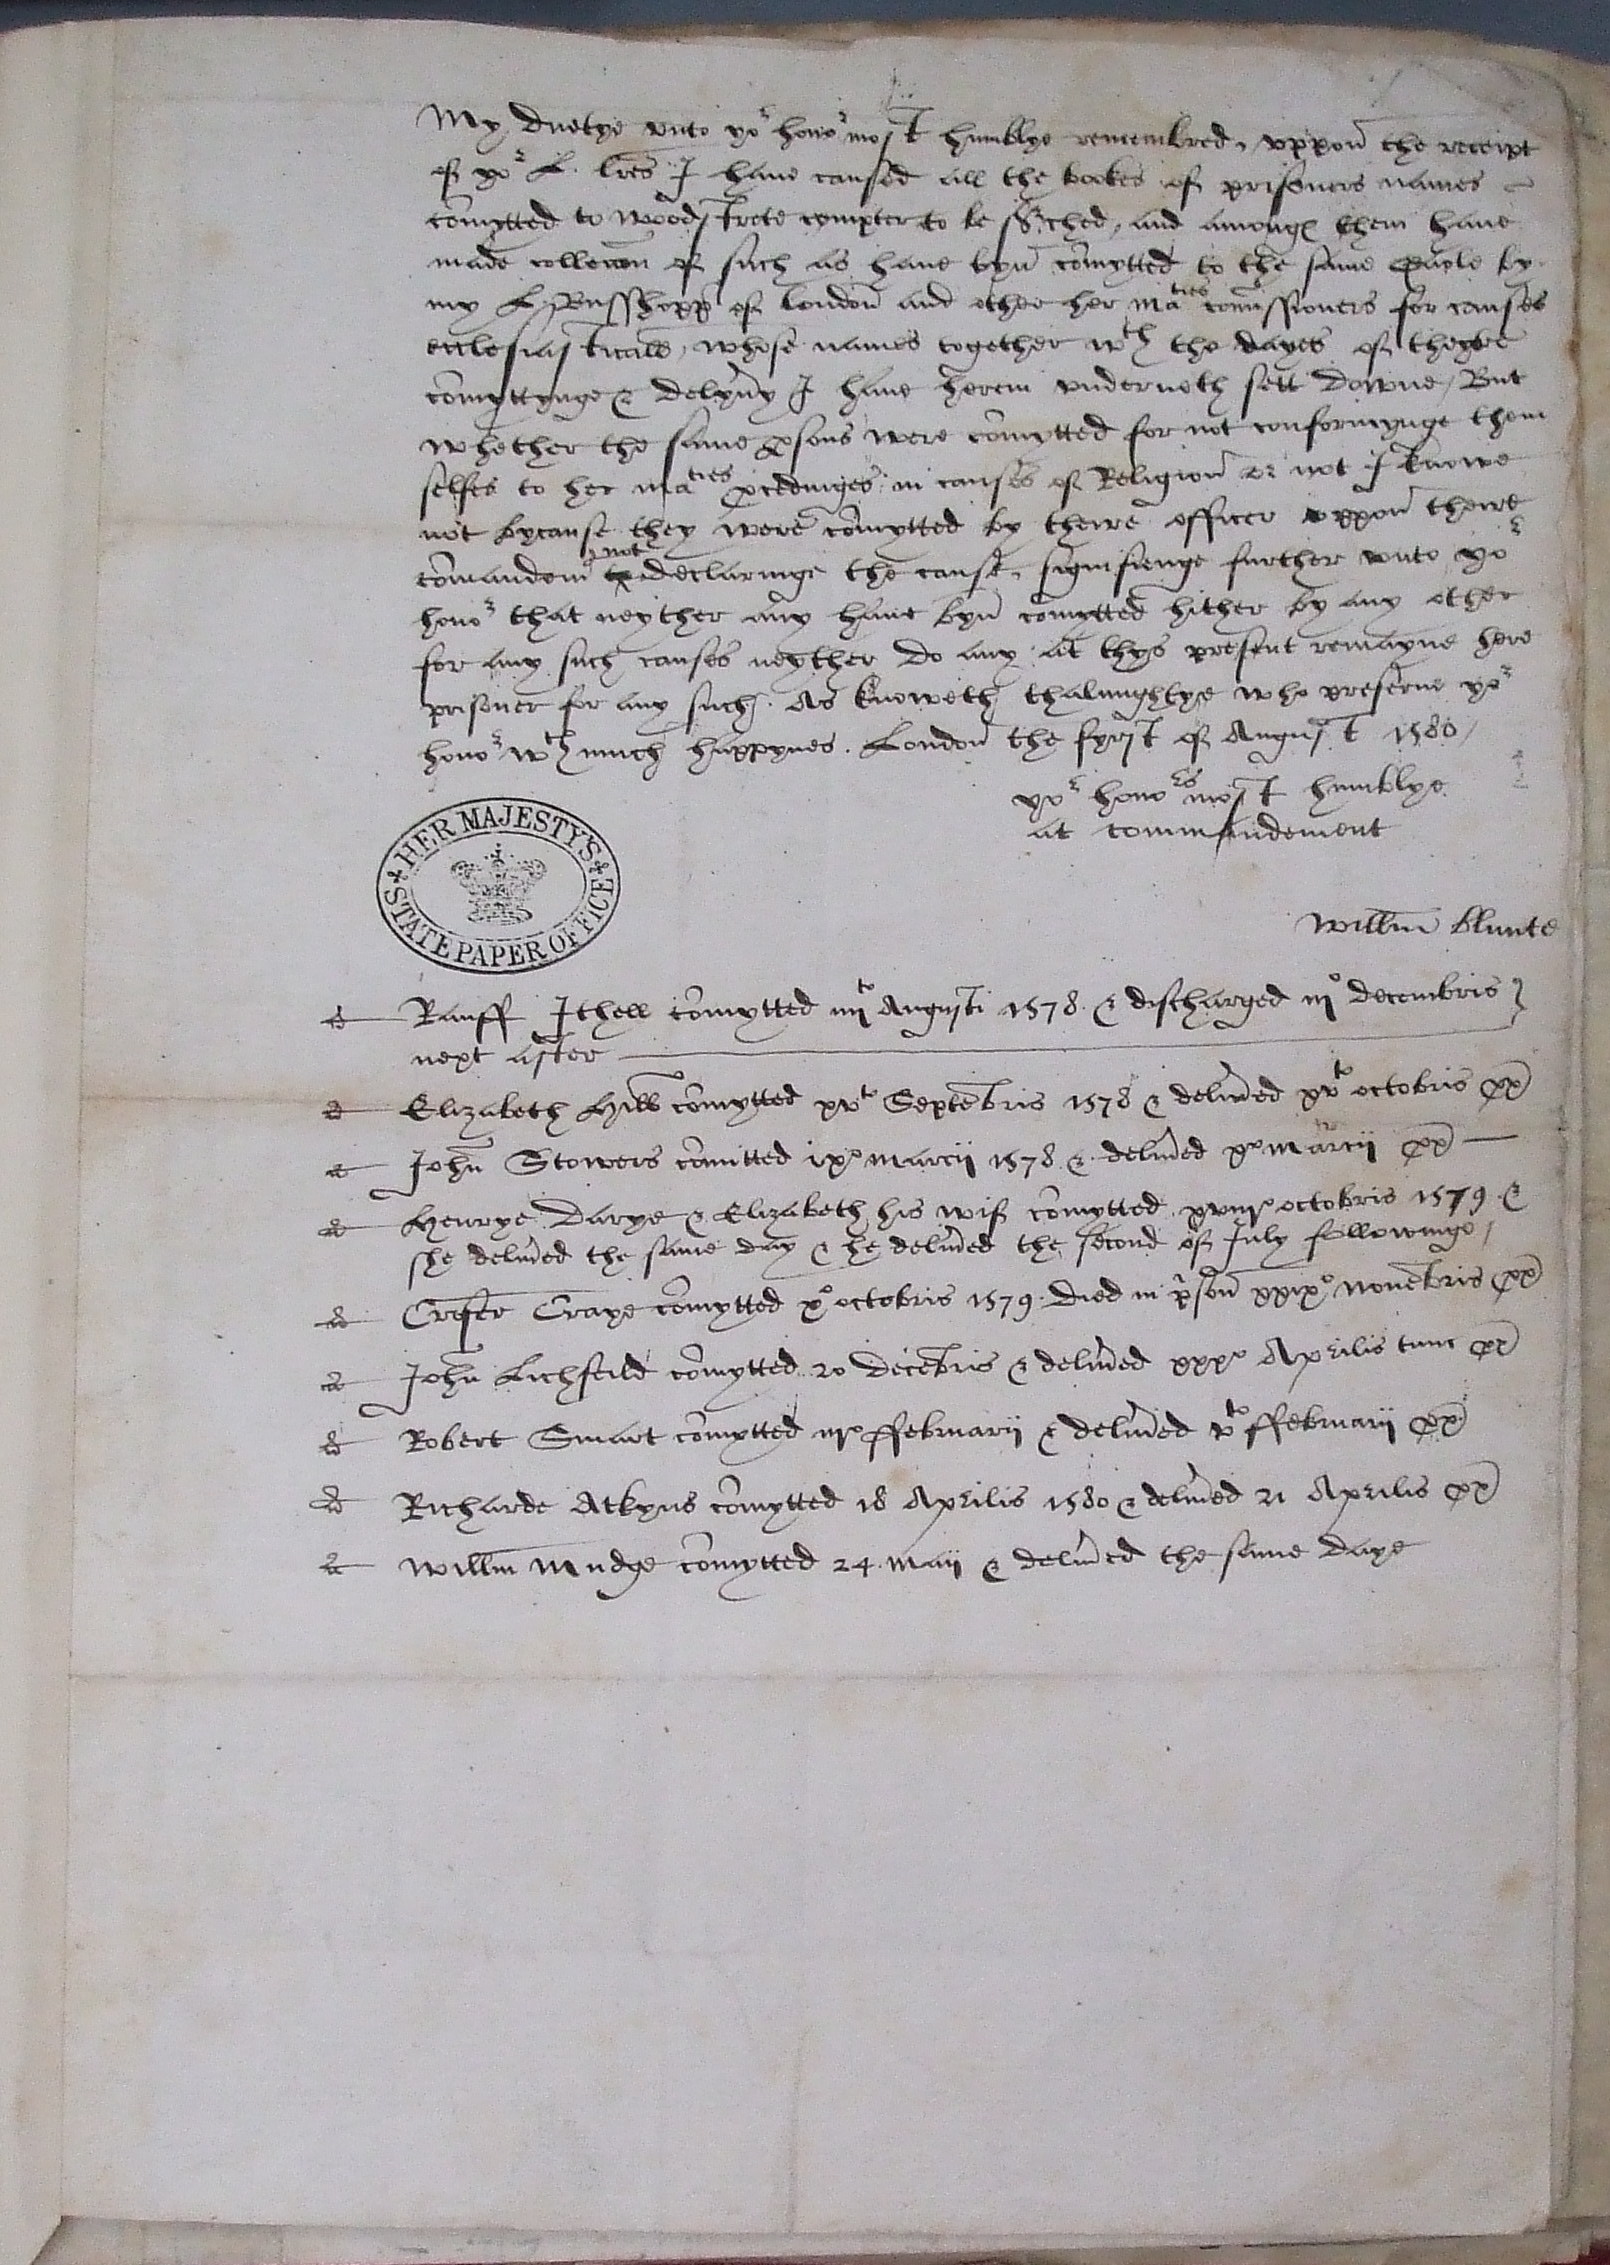 My duetye vnto yor honor most humblye remembred, vppon the receipt
of yor L. lres I haue caused all the bookes of prisoners names
comytted to woodstrete compter to be sched, and amongꝭ them haue
made colleccon of such as haue byn comytted to the same gaole by
my L. Busshopp of London and other her maties comissioners for causes
ecclesiasticall, whose names together wth the dayes of theyre
comyttynge & delyuy I haue herein vnderneth sett downe, But
whether the same psons were comytted for not conformynge them
selfes to her maties pcedinges in causes of Religion or not I knowe
not bycause they were comytted by theire officer vppon theire
comandemt not declaringe the cause, signifienge further vnto yor
honor that neyther any haue byn comytted hither by any other
for any such causes neyther do any at thys present remayne here
prisoner for any such. As knoweth thalmightye who preserue yor
honor wth much happynes. London the fyrst of August 1580,
yor honors most humblye
at commandement
HER MAJESTY'S
STATE PAPER OFFICE
Willm Blunte
Rauff Ithell comytted iiijto Augusti 1578 & discharged iijo decembris
next after
Elizabeth Hill comytted xvto Septembris 1578 & deliued xvto octobris px
John Stowers comitted ixo marcii 1578 & deliued xo marcii px
Henrye Darye & Elizabeth his wif comytted xviijo octobris 1579 &
she deliued the same day & he deliued the second of July followinge,
Craye comytted xo octobris 1579. died in pson xxixo nouembris px
John Lichfeild comytted 20 decebris & deliued xxxo Aprilis tunc px
Robert Smart comytted iijo ffebruarij & deliued vto ffebruarij px
Richarde Atkyns comytted 18 Aprilis 1580 & deliued 21 Aprilis px
Willm Mudge comytted 24 maij & deliued the same daye